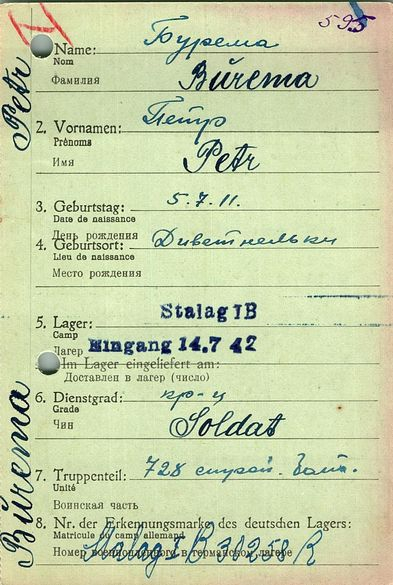 595
Бурема
Name:
Nom
Фамилия
Būrema
Петр
2. Vornamen:
Prénoms
Имя
Petr
3. Geburtstag: 5.7.11.
Date de naissance
День рождения
4. Geburtsort:
Lieu de naissance
Место рождения
Stalag IB
5. Lager:
Camp
Лагерь
Eingang 14.7 42
Im Lager eingeliefert am:
Доставлен в лагерь (число)
6. Dienstgrad: кр-ц
Grade
Чин
Soldat
7. Truppenteil: 728 строй. бат.
Unité
Воинская часть
8. Nr. der Erkennungsmarke des deutschen Lagers:
Matricule du camp allemand
Stalag I B 38258 R
Номер военнопленного в германском лагере
Petr
Būrema